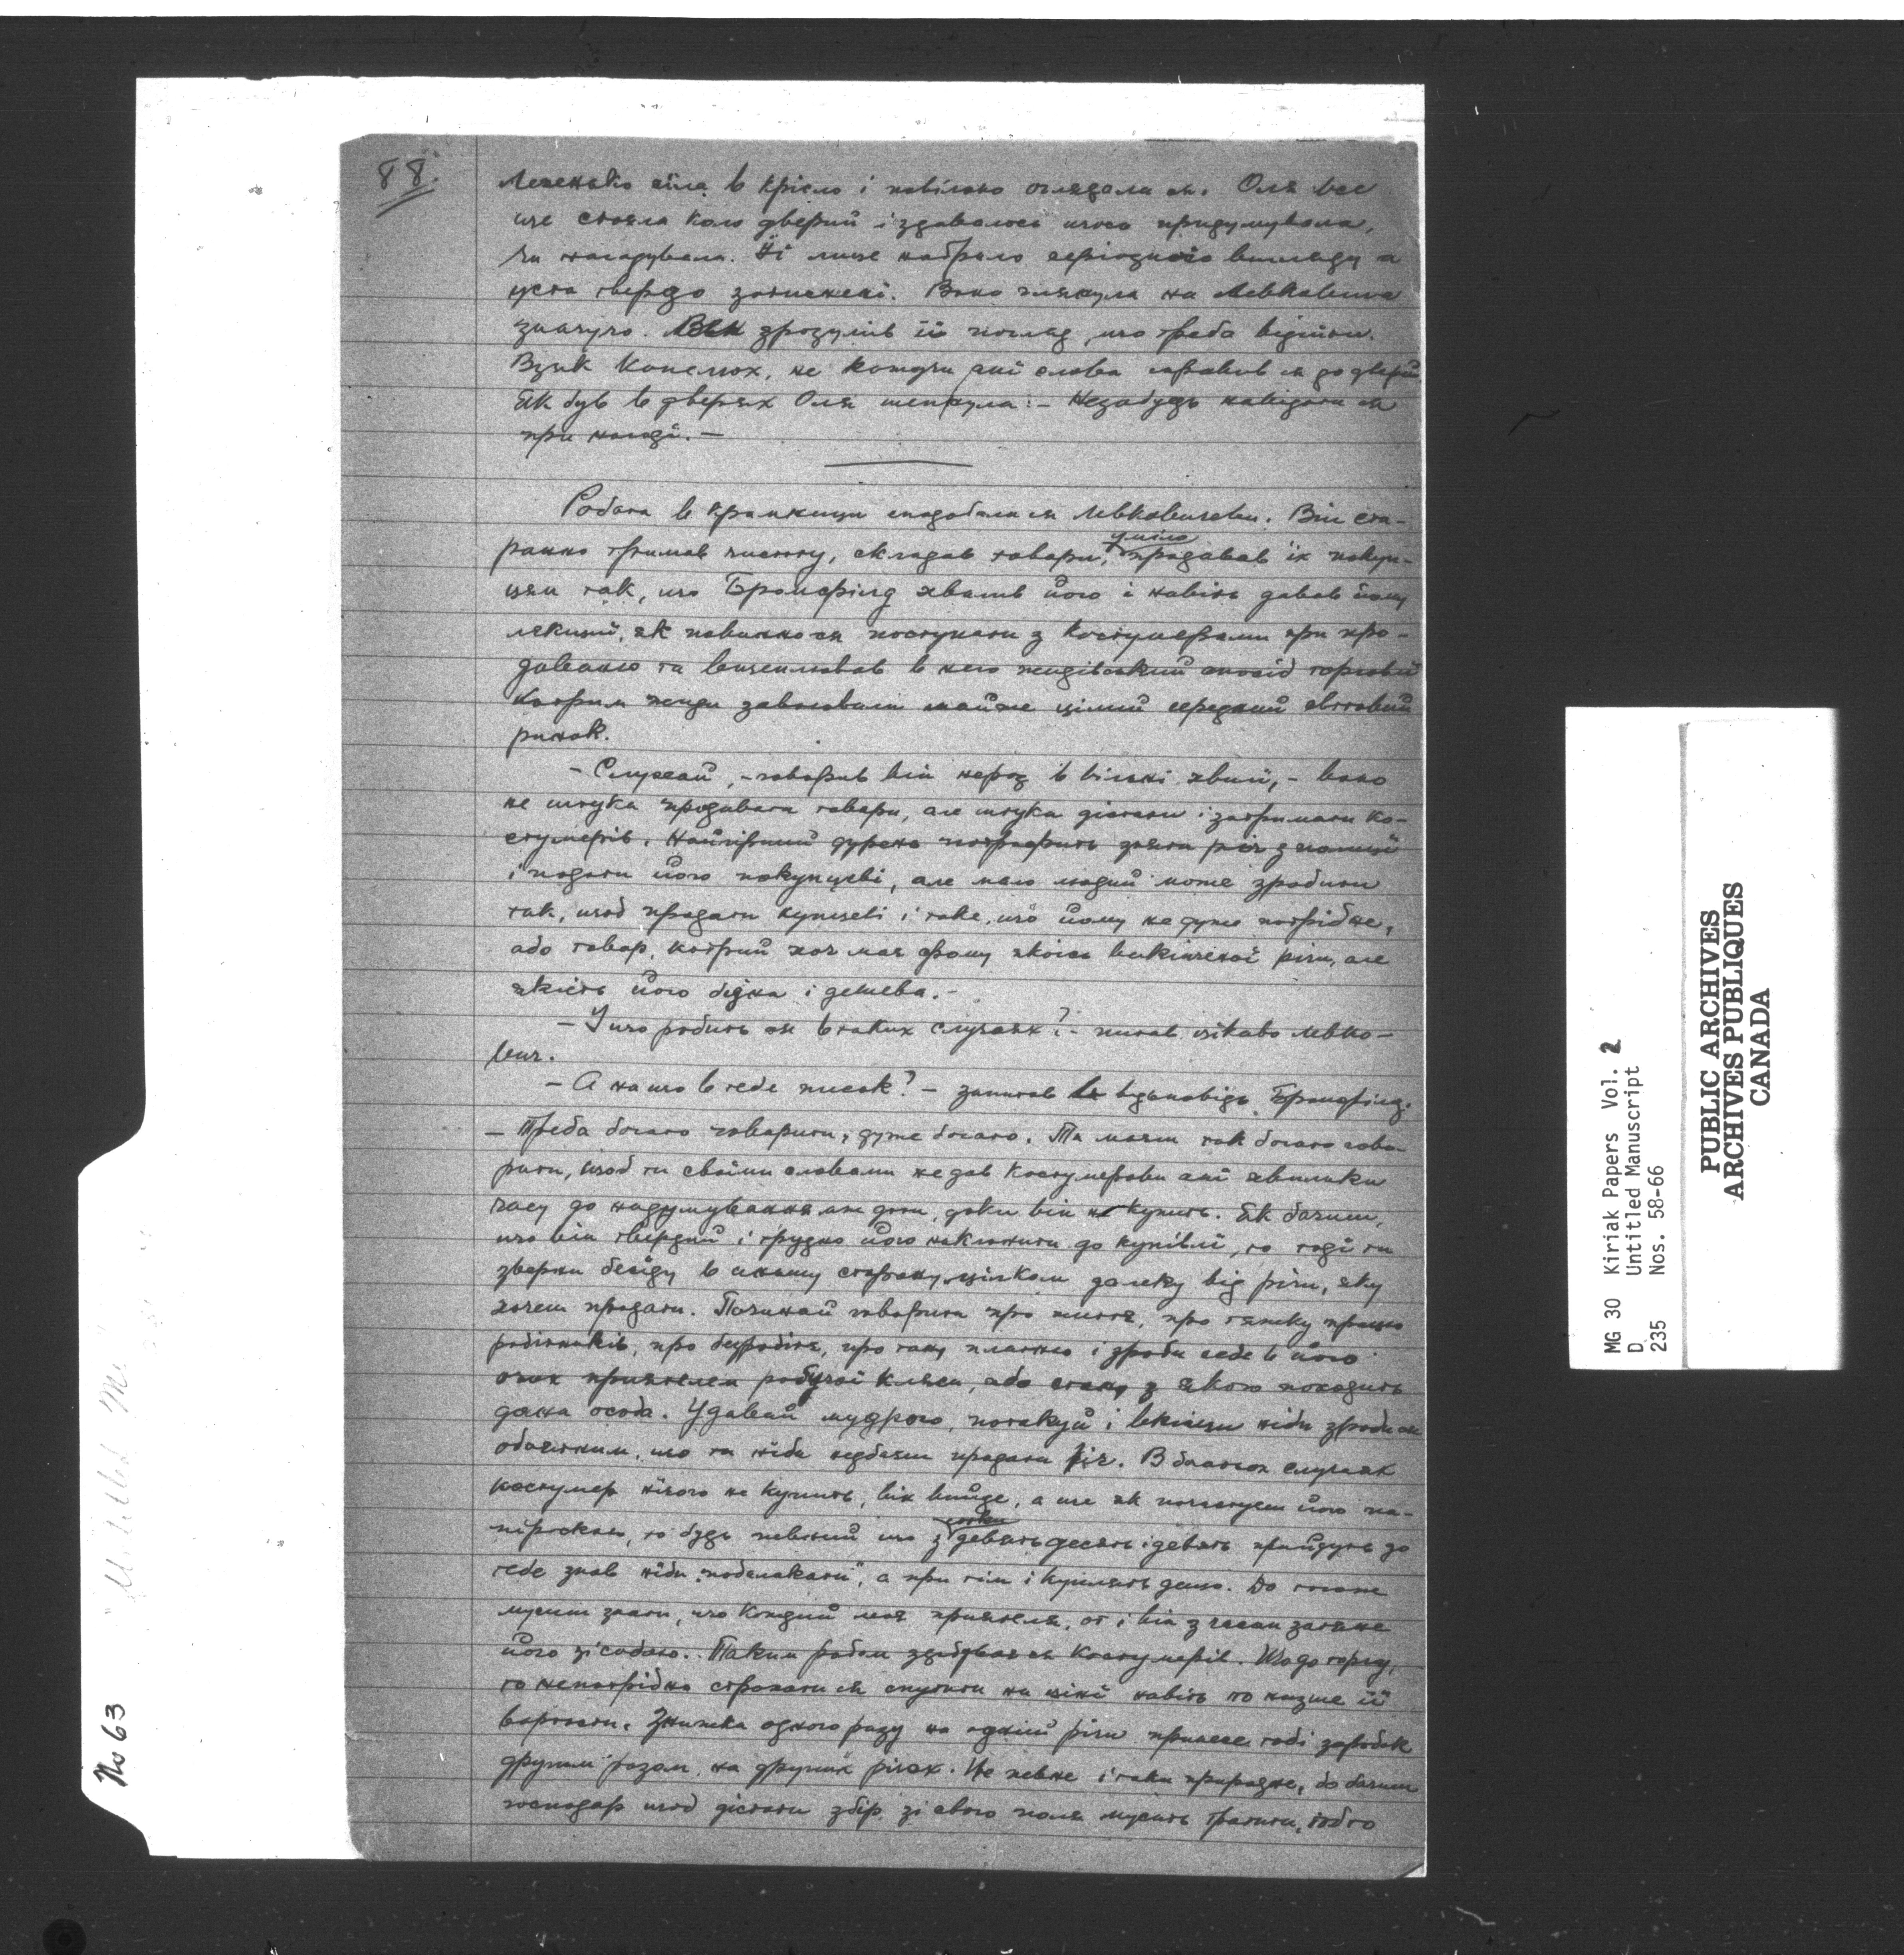 88.
Легенько сіла в крісло і повільно оглядала ся. Оля все
ще стояла коло дверий і здавалось щось придумувала,
чи нагадувала. Її лице набрало серіозного вигляду а
уста твердо затиснені. Вона глянула на Левковича
значучо. Він зрозумів її погляд, що треба відійти.
Взяв капелюх, не кажучи ані слова справив ся до дверий
Як був в дверях Оля шепнула: – Незабудь навідати ся
при нагоді. –
Робота в крамници сподобала ся Левковичеви. Він ста-
ранно тримав чистоту, складав товари, уміло продавав їх покуп-
цям так, що Бромфілд хвалив його і навіть давав йому
лєкциї, як повинно ся поступати з костумерами при про-
даваню та вщеплював в него жидівський спосіб торговлі
котрим жиди завоювали майже цілий середний світовий
ринок.
– Слухай, – говорив він нераз в вільні хвилі, – воно
не штука продавати товари, але штука дістати і затримати ко-
стумерів. Найгірший дурень потрафить зняти річ з полиці
і подати його покупцеві, але мало людий може зробити
так, щоб продати купцеві і таке, що йому не дуже потрібне,
або товар, котрий хоч має форму якоїсь викінченої річи, але
якість його бідна і дешева. –
– І що робить ся в таких случаях? – питав цікаво Левко-
вич.
– А на що в тебе писок? – запитав в відповідь Бромфілд.
– Треба богато говорити, дуже богато. Ти маєш так богато гово-
рити, щоб ти своїми словами не дав костумерови ані хвильки
часу до надумування аж доти, доки він не купить. Як бачиш,
що він твердий і трудно його наклонити до купівлі, то тоді ти
зверни бесіду в иншу сторону цілком далеку від річи, яку
хочеш продати. Починай говорити про життя, про тяжку працю
робітників, про безробітя, про таку платню і зроби себе в його
очах приятелем робучої кляси, або стану з якого походить
дана особа. Удавай мудрого, потакуй і вкінци ніби зроби ся
обоятним, що ти ніби недбаєш продати річ. В богатьох случаях
костумер нічого не купить, він вийде, а ще як почастуєш його па-
піроскою, то будь певний що з сотки девятьдесять і девять прийдуть до
тебе знов ніби „побалакати", а при тім і куплять дещо. До того
мусиш знати, що кождий має приятеля, от і він з часом затягне
його зі собою. Таким робом здобуває ся костумерів. Щодо торгу,
то непотрібно страхати ся опустити на ціні навіть по низше її
вартости. Знижка одного разу на одній річи принесе тобі заробок
другим разом на других річах. Це певне і таки природне, бо бачиш
господар щоб дістати збір зі свого поля мусить тратити, тобто
No 63
MG 30 Kiriak Papers Vol. 2
D Untitled Manuscript
235 Nos. 58-66
PUBLIC ARCHIVES
ARCHIVES PUBLIQUES
CANADA